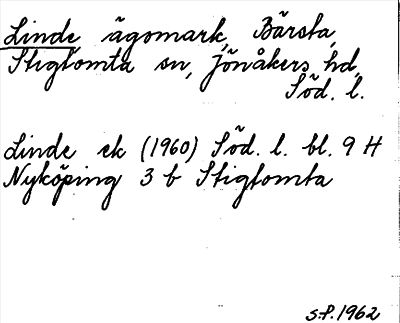 Linde ägomark, Bärsta,
Stigtomta sn, Jönåkers hd,
Söd. l.
Linde ek (1960) Söd. l. bl. 9 H
Nyköping 3 b Stigtomta
S.P. 1962